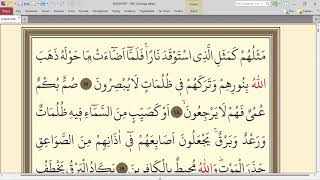 مَثَلُهُمْ كَمَثَلِ الَّذِي اسْتَوْقَدَ نَارًا فَلَمَّا أَضَاءَتْ مَا حَوْلَهُ ذَهَبَ
اللهُ بِنُورِهِمْ وَتَرَكَهُمْ فِي ظُلُمَاتٍ لَا يُبْصِرُونَ ١٧ صُمٌّ بُكْمٌ
عُمْيٌ فَهُمْ لَا يَرْجِعُونَ ١٨ أَوْ كَصَيِّبٍ مِنَ السَّمَاءِ فِيهِ ظُلُمَاتٌ
وَرَعْدٌ وَبَرْقٌ يَجْعَلُونَ أَصَابِعَهُمْ فِي آذَانِهِمْ مِنَ الصَّوَاعِقِ
حَذَرَ الْمَوْتِ وَاللهُ مُحِيطٌ بِالْكَافِرِينَ ١٩ يَكَادُ الْبَرْقُ يَخْطَفُ